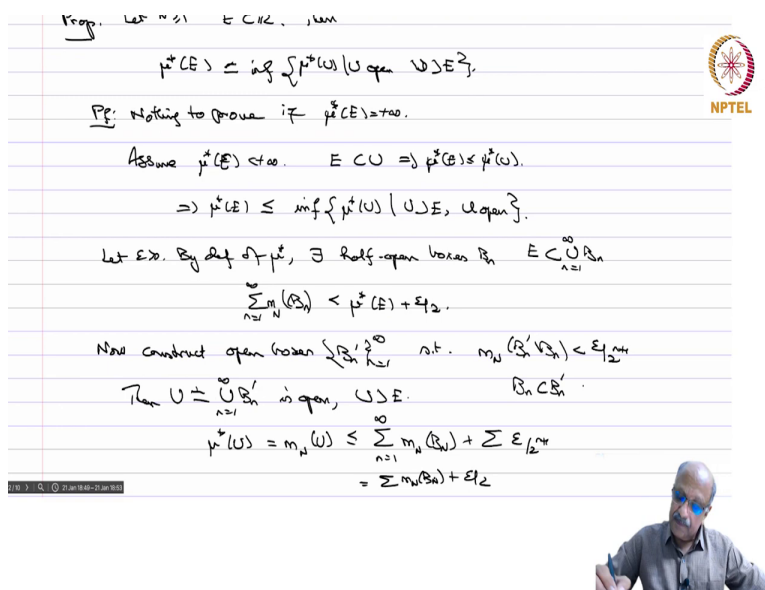 Prop. Let N≥1 E⊂ℝ. Then
μ*(E) = inf {μ*(U) | U open U⊃E}.
Pf: Nothing to prove if μ*(E)=+∞.
NPTEL
Assume μ*(E)<+∞. E⊂U ⇒ μ*(E)≤μ*(U).
⇒ μ*(E) ≤ inf{μ*(U) | U⊃E, U open}.
Let ε>0. By def of μ*, ∃ half-open boxes Bn E⊂∪_{n=1}^∞ Bn
∑_{n=1}^∞ m_N(Bn) < μ*(E)+ε/2.
Now construct open boxes {Bn'}_{n=1}^∞ s.t. m_N(Bn'\Bn)<ε/2^{n+1}
Then U ≐ ∪_{n=1}^∞ Bn' is open, U⊃E. Bn⊂Bn'.
μ*(U) = m_N(U) ≤ ∑_{n=1}^∞ m_N(Bn) + ∑ ε/2^{n+1}
= ∑ m_N(Bn) + ε/2
2/10 21 Jan 18:49 - 21 Jan 18:53